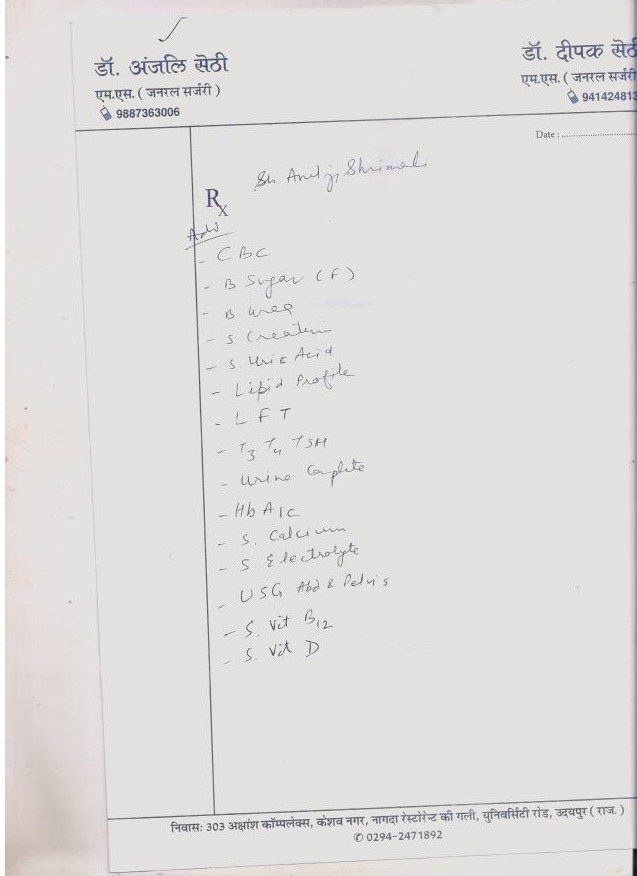 डॉ. अंजलि सेठी
एम.एस. ( जनरल सर्जरी )
9887363006
डॉ. दीपक सेठ
एम.एस. ( जनरल सर्जरी
941424813
Date :
Sh Anil ji Shrimali
Rx
Adv
- CBC
- B Sugar (F)
- B Urea
- S. Creatinin
- S. Uric Acid
- Lipid Profile
- LFT
- T3 T4 TSH
- Urine Complete
- HbA1C
- S. Calcium
- S. Electrolyte
- USG Abd & Pelvis
- S. Vit B12
- S. Vit D
निवास: 303 अक्षांश कॉम्पलेक्स, केशव नगर, नागदा रेस्टोरेन्ट की गली, युनिवर्सिटी रोड, उदयपुर ( राज. )
0294-2471892